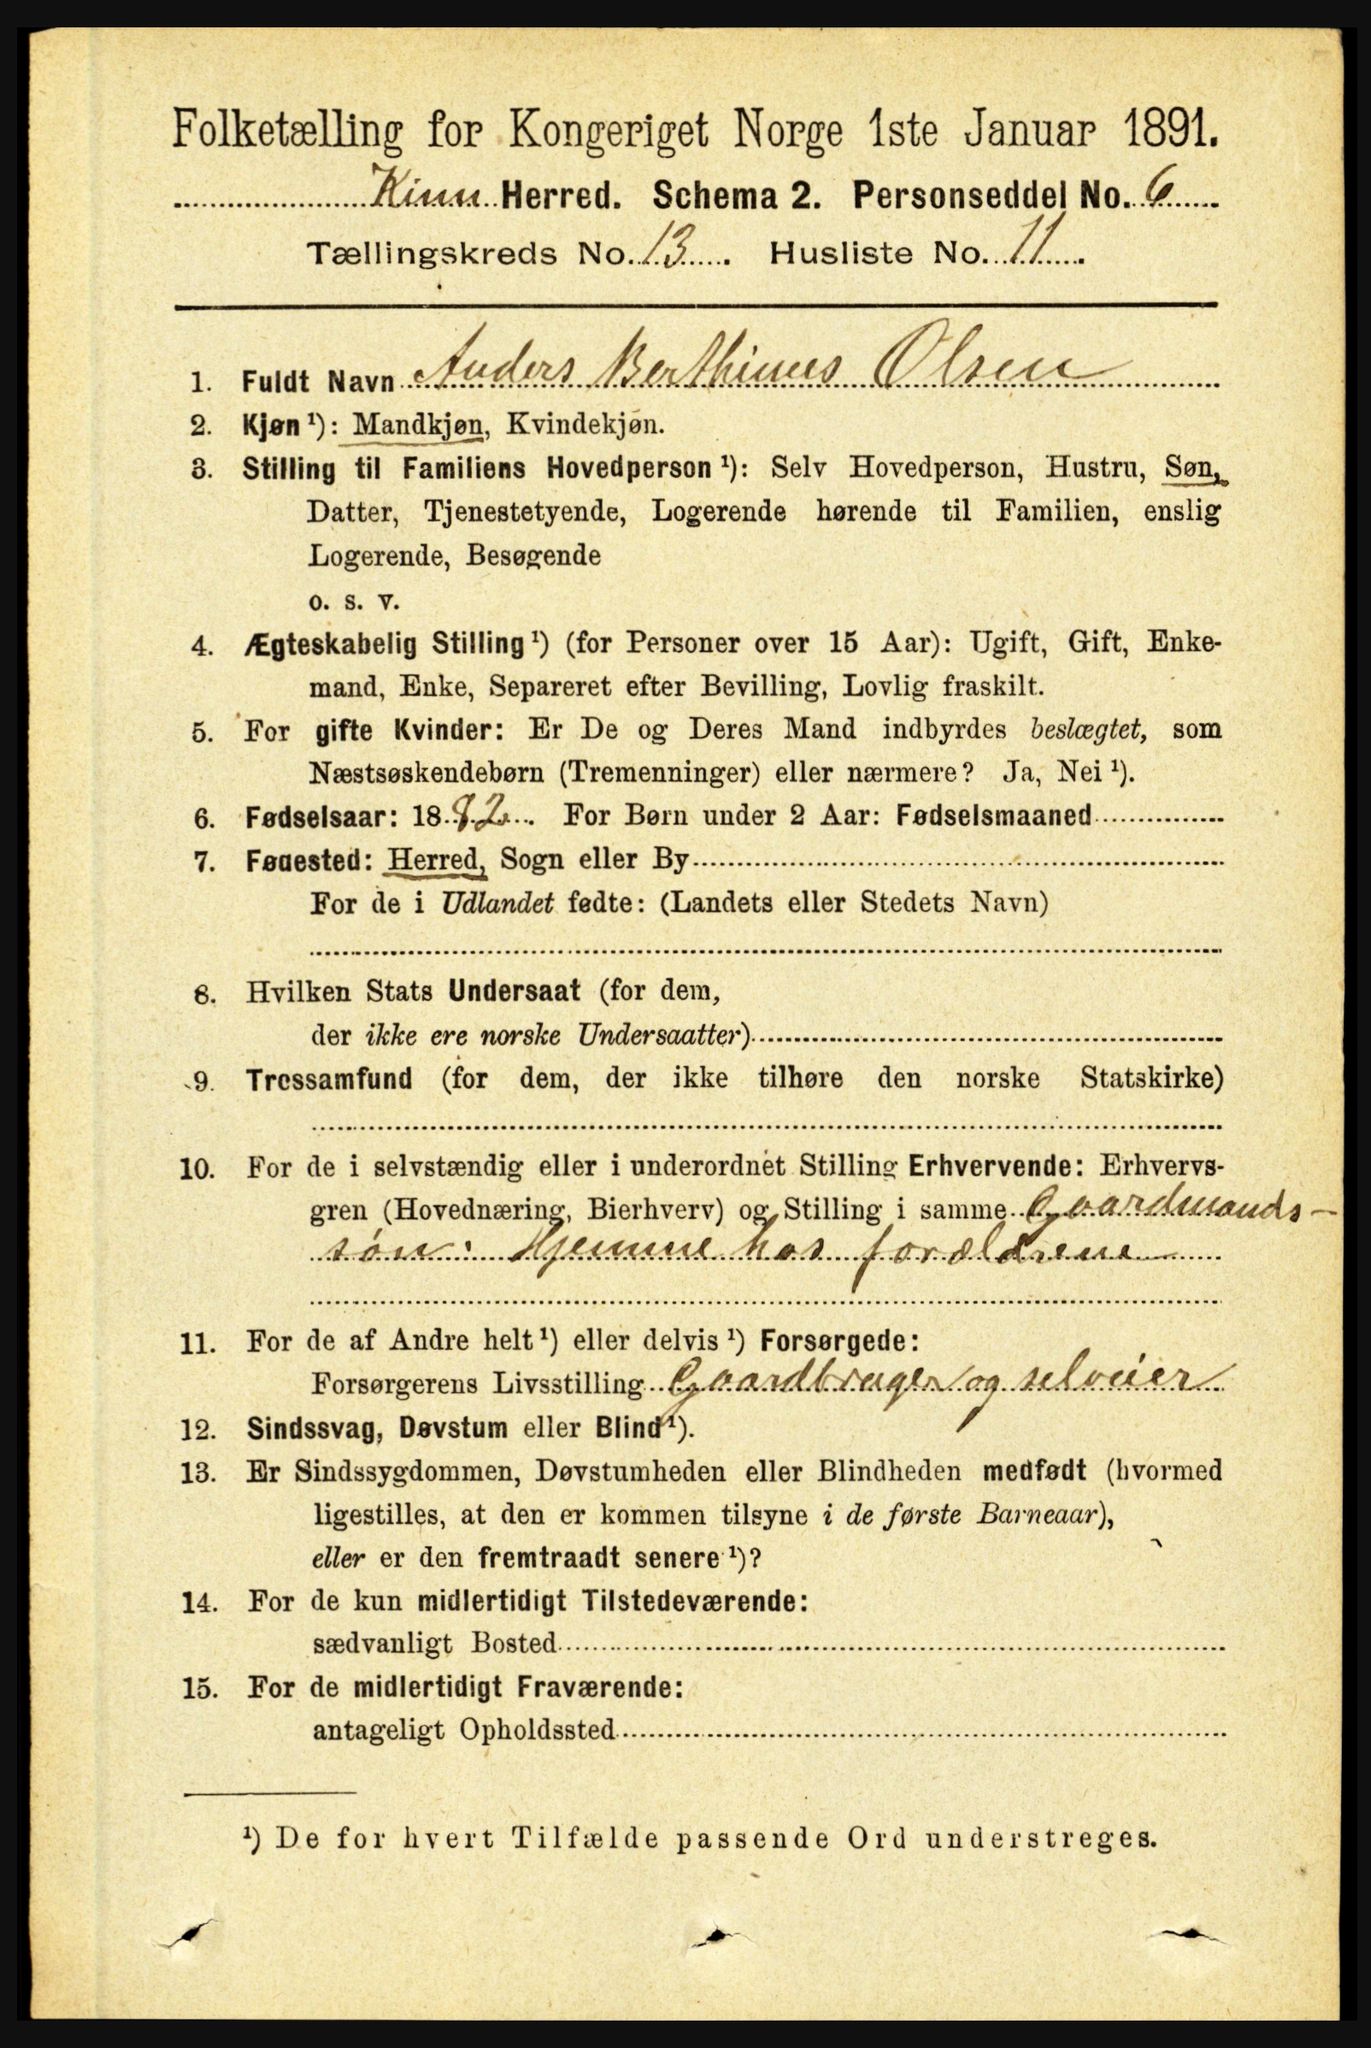 Folketælling for Kongeriget Norge 1ste Januar 1891.
Kinn Herred. Schema 2. Personseddel No. 6
Tællingskreds No. 13. Husliste No. 11.
1. Fuldt Navn Anders Berthinus Olsen
2. Kjøn¹): Mandkjøn, Kvindekjøn.
3. Stilling til Familiens Hovedperson¹): Selv Hovedperson, Hustru, Søn,
Datter, Tjenestetyende, Logerende hørende til Familien, enslig
Logerende, Besøgende
o. s. v.
4. Ægteskabelig Stilling¹) (for Personer over 15 Aar): Ugift, Gift, Enke-
mand, Enke, Separeret efter Bevilling, Lovlig fraskilt.
5. For gifte Kvinder: Er De og Deres Mand indbyrdes beslægtet, som
Næstsøskendebørn (Tremenninger) eller nærmere? Ja, Nei¹).
6. Fødselsaar: 1882. For Børn under 2 Aar: Fødselsmaaned
7. Fødested: Herred, Sogn eller By
For de i Udlandet fødte: (Landets eller Stedets Navn)
8. Hvilken Stats Undersaat (for dem,
der ikke ere norske Undersaatter)
9. Trossamfund (for dem, der ikke tilhøre den norske Statskirke)
10. For de i selvstændig eller i underordnet Stilling Erhvervende: Erhvervs-
gren (Hovednæring, Bierhverv) og Stilling i samme Gaardmands-
søn. Hjemme hos forældrene
11. For de af Andre helt¹) eller delvis¹) Forsørgede:
Forsørgerens Livsstilling Gaardbruger og selveier
12. Sindssvag, Døvstum eller Blind¹).
13. Er Sindssygdommen, Døvstumheden eller Blindheden medfødt (hvormed
ligestilles, at den er kommen tilsyne i de første Barneaar),
eller er den fremtraadt senere¹)?
14. For de kun midlertidigt Tilstedeværende:
sædvanligt Bosted
15. For de midlertidigt Fraværende:
antageligt Opholdssted
¹) De for hvert Tilfælde passende Ord understreges.